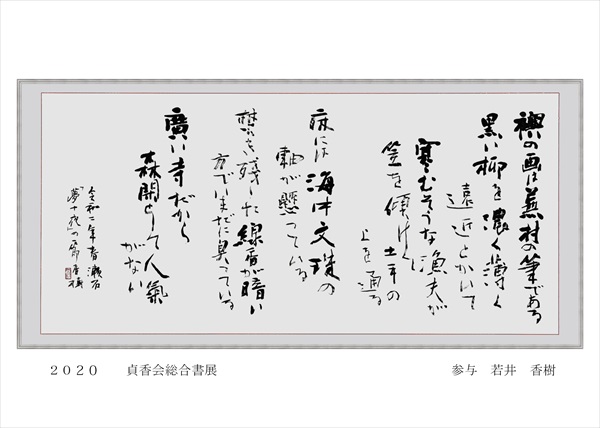 襖の画は蕪村の筆である
黒い柳を濃く薄く
遠近とかいて
寒むそうな漁夫が
笠を傾けて土手の
上を通る
床には海中文殊の
軸が懸っている
焚き残した線香が暗い
方でいまだに臭っている
廣い寺だから
森閑として人氣
がない
令和二年春 漱石
「夢十夜」の一節 香樹
2020 貞香会総合書展
参与 若井 香樹